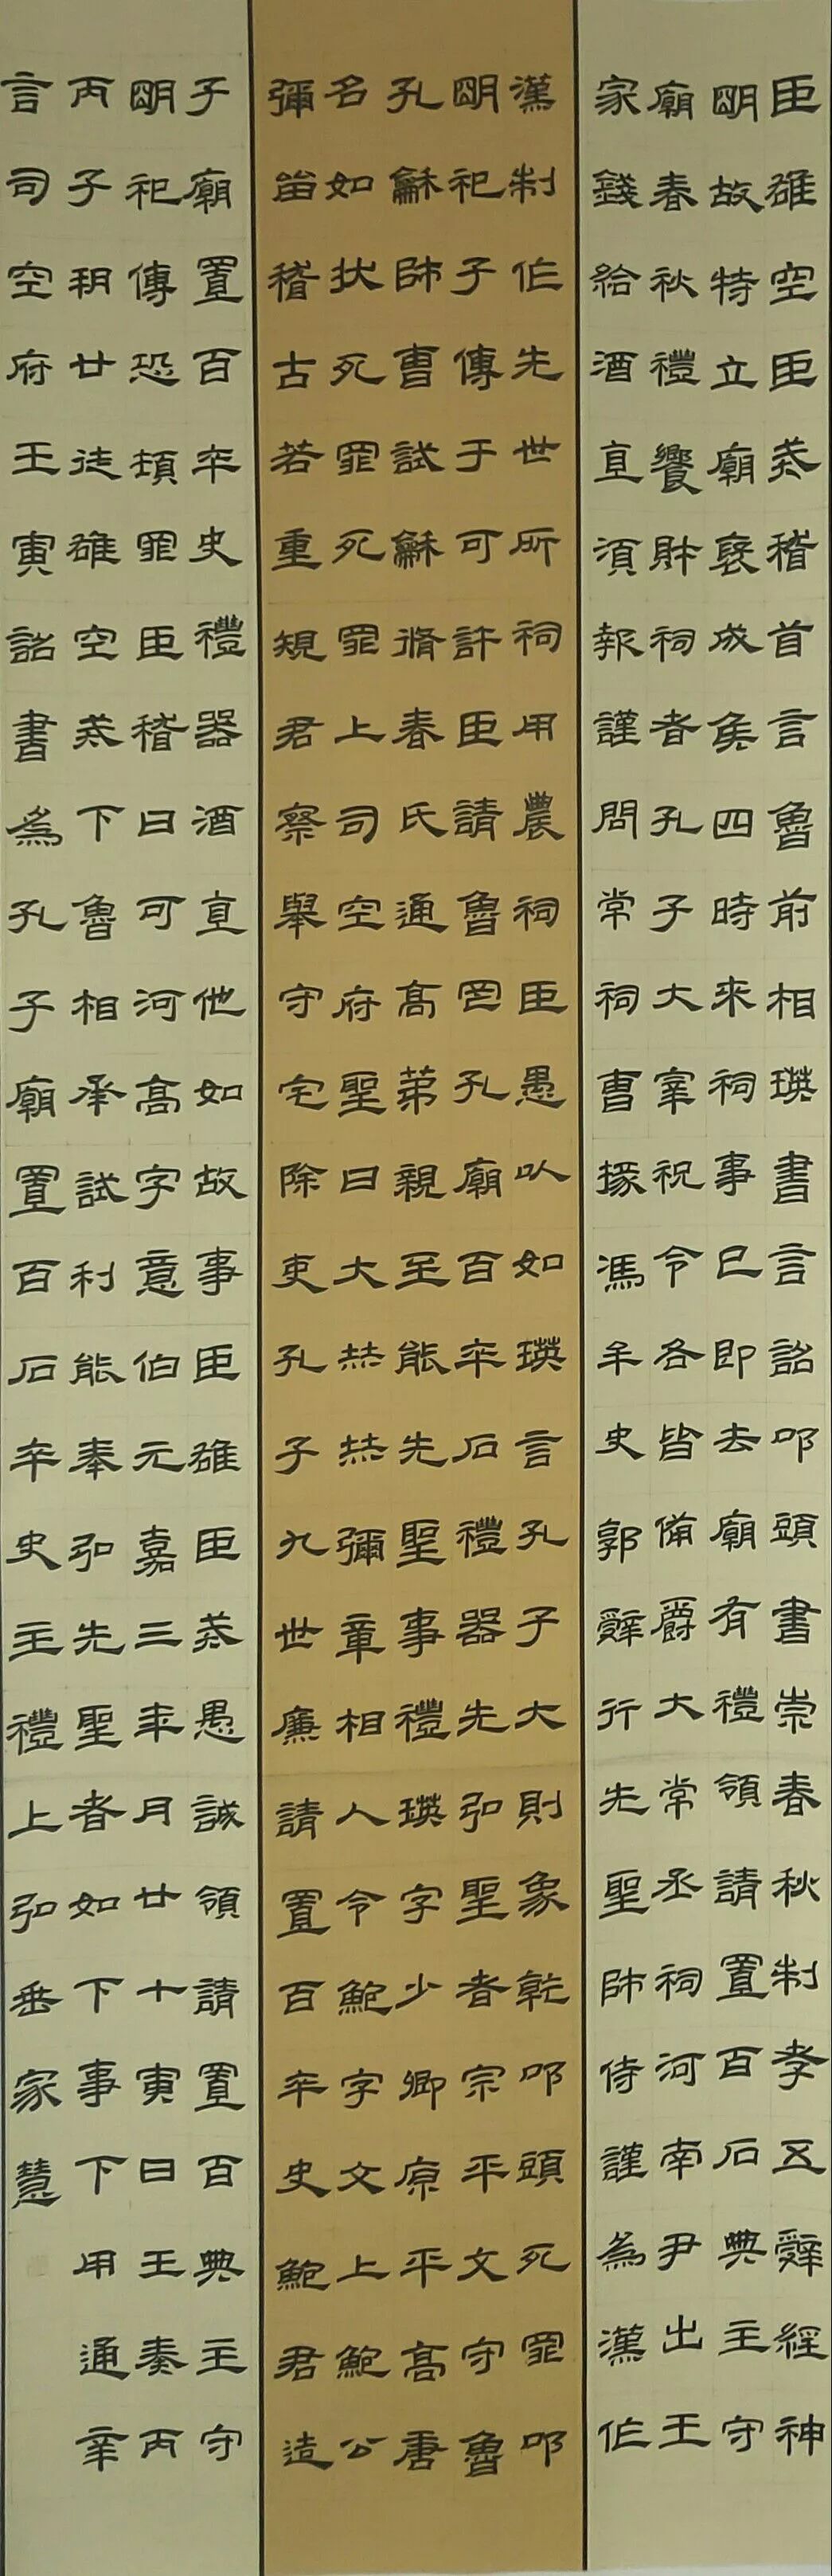 臣雄空臣戒稽首言魯前相瑛書言詔叩頭書崇春秋制孝五辤經神
明故特立廟褒成矦四時来祠事已即去廟有禮領請置百石典主守
廟春秋禮饗財祠者孔子大宰祝令各皆備爵大常丞祠河南尹出王
家錢給酒直須報謹問常祠曹掾馮牟史郭辤行先聖師侍謹為漢作
漢制作先世所祠用農祠臣愚以如瑛言孔子大則象乾叩頭死罪叩
明祀子傳于可許臣請魯罔孔廟百卒石禮器先弘聖者宗平文守魯
孔龢師曹試龢脩春氏通高第親至能先聖事禮瑛字少卿原平高唐
名如狀死罪死罪上司空府聖曰大恭恭彌章相人令鮑字文上鮑公
彌畄稽古若重規君察舉守宅除吏孔子九世廉請置百卒史鮑君造
子廟置百卒史禮器酒直他如故事臣雄臣戒愚誠領請置百典主守
明祀傳恐頓罪臣稽曰可河高字意伯元嘉三年月廿十寅曰王奏丙
丙子玥廿徒雄空戒下魯相承試利能奉弘先聖者如下事下用通辛
言司空府王寅詔書為孔子廟置百石卒史主禮上弘垂家慧